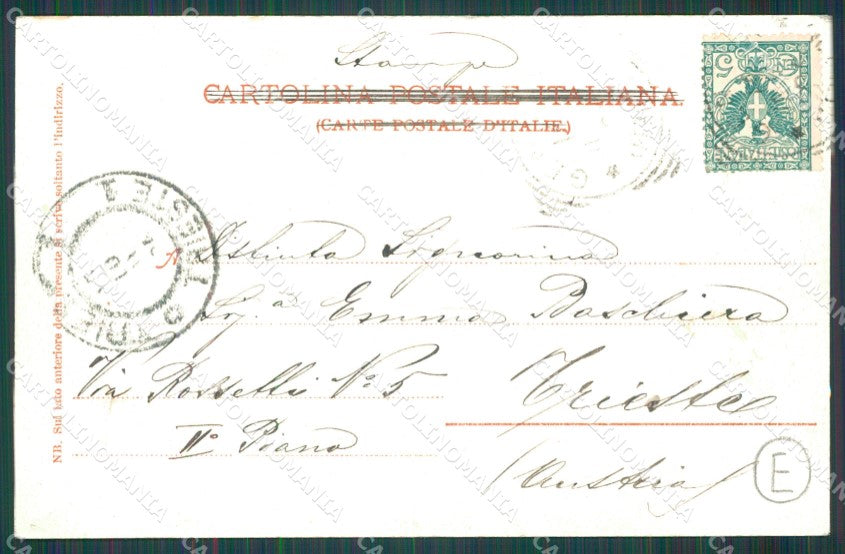 Stampe
CARTOLINA POSTALE ITALIANA.
(CARTE POSTALE D'ITALIE.)
NB. Sul lato anteriore della presente si scrive soltanto l'indirizzo.
TRIESTE 1
TRIEST
A Distinta Signorina
Sig.a Emma Baschiera
Via Rossetti No 5
Trieste
IIo Piano
(Austria)
E
5
CARTOLINOMANIA